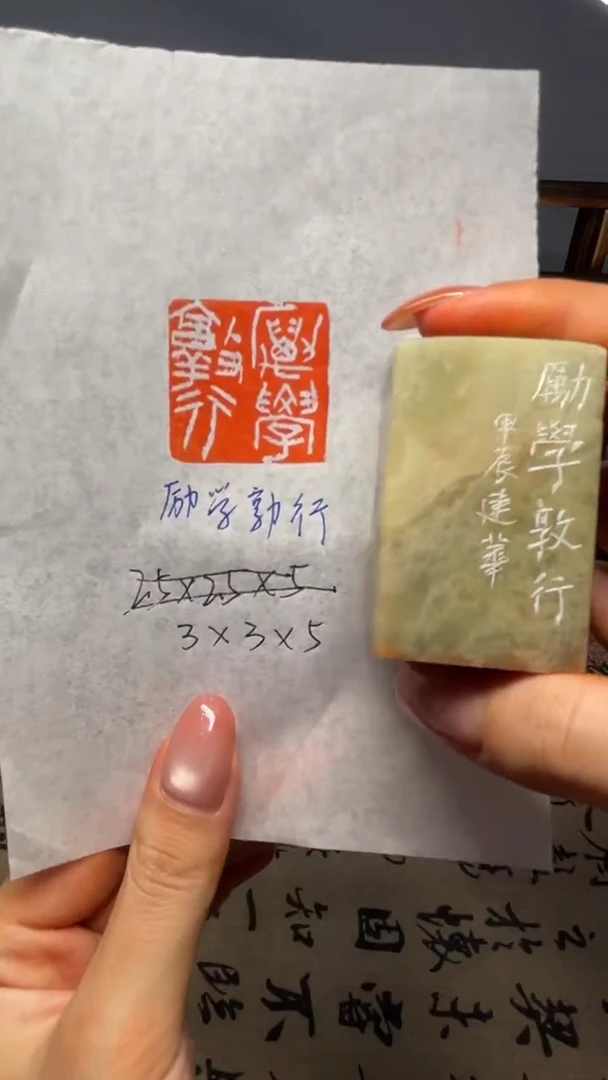 勵學敦行
励学敦行
2.5×2.5×5
3×3×5
勵學敦行
甲辰建華
知一
因
不
當